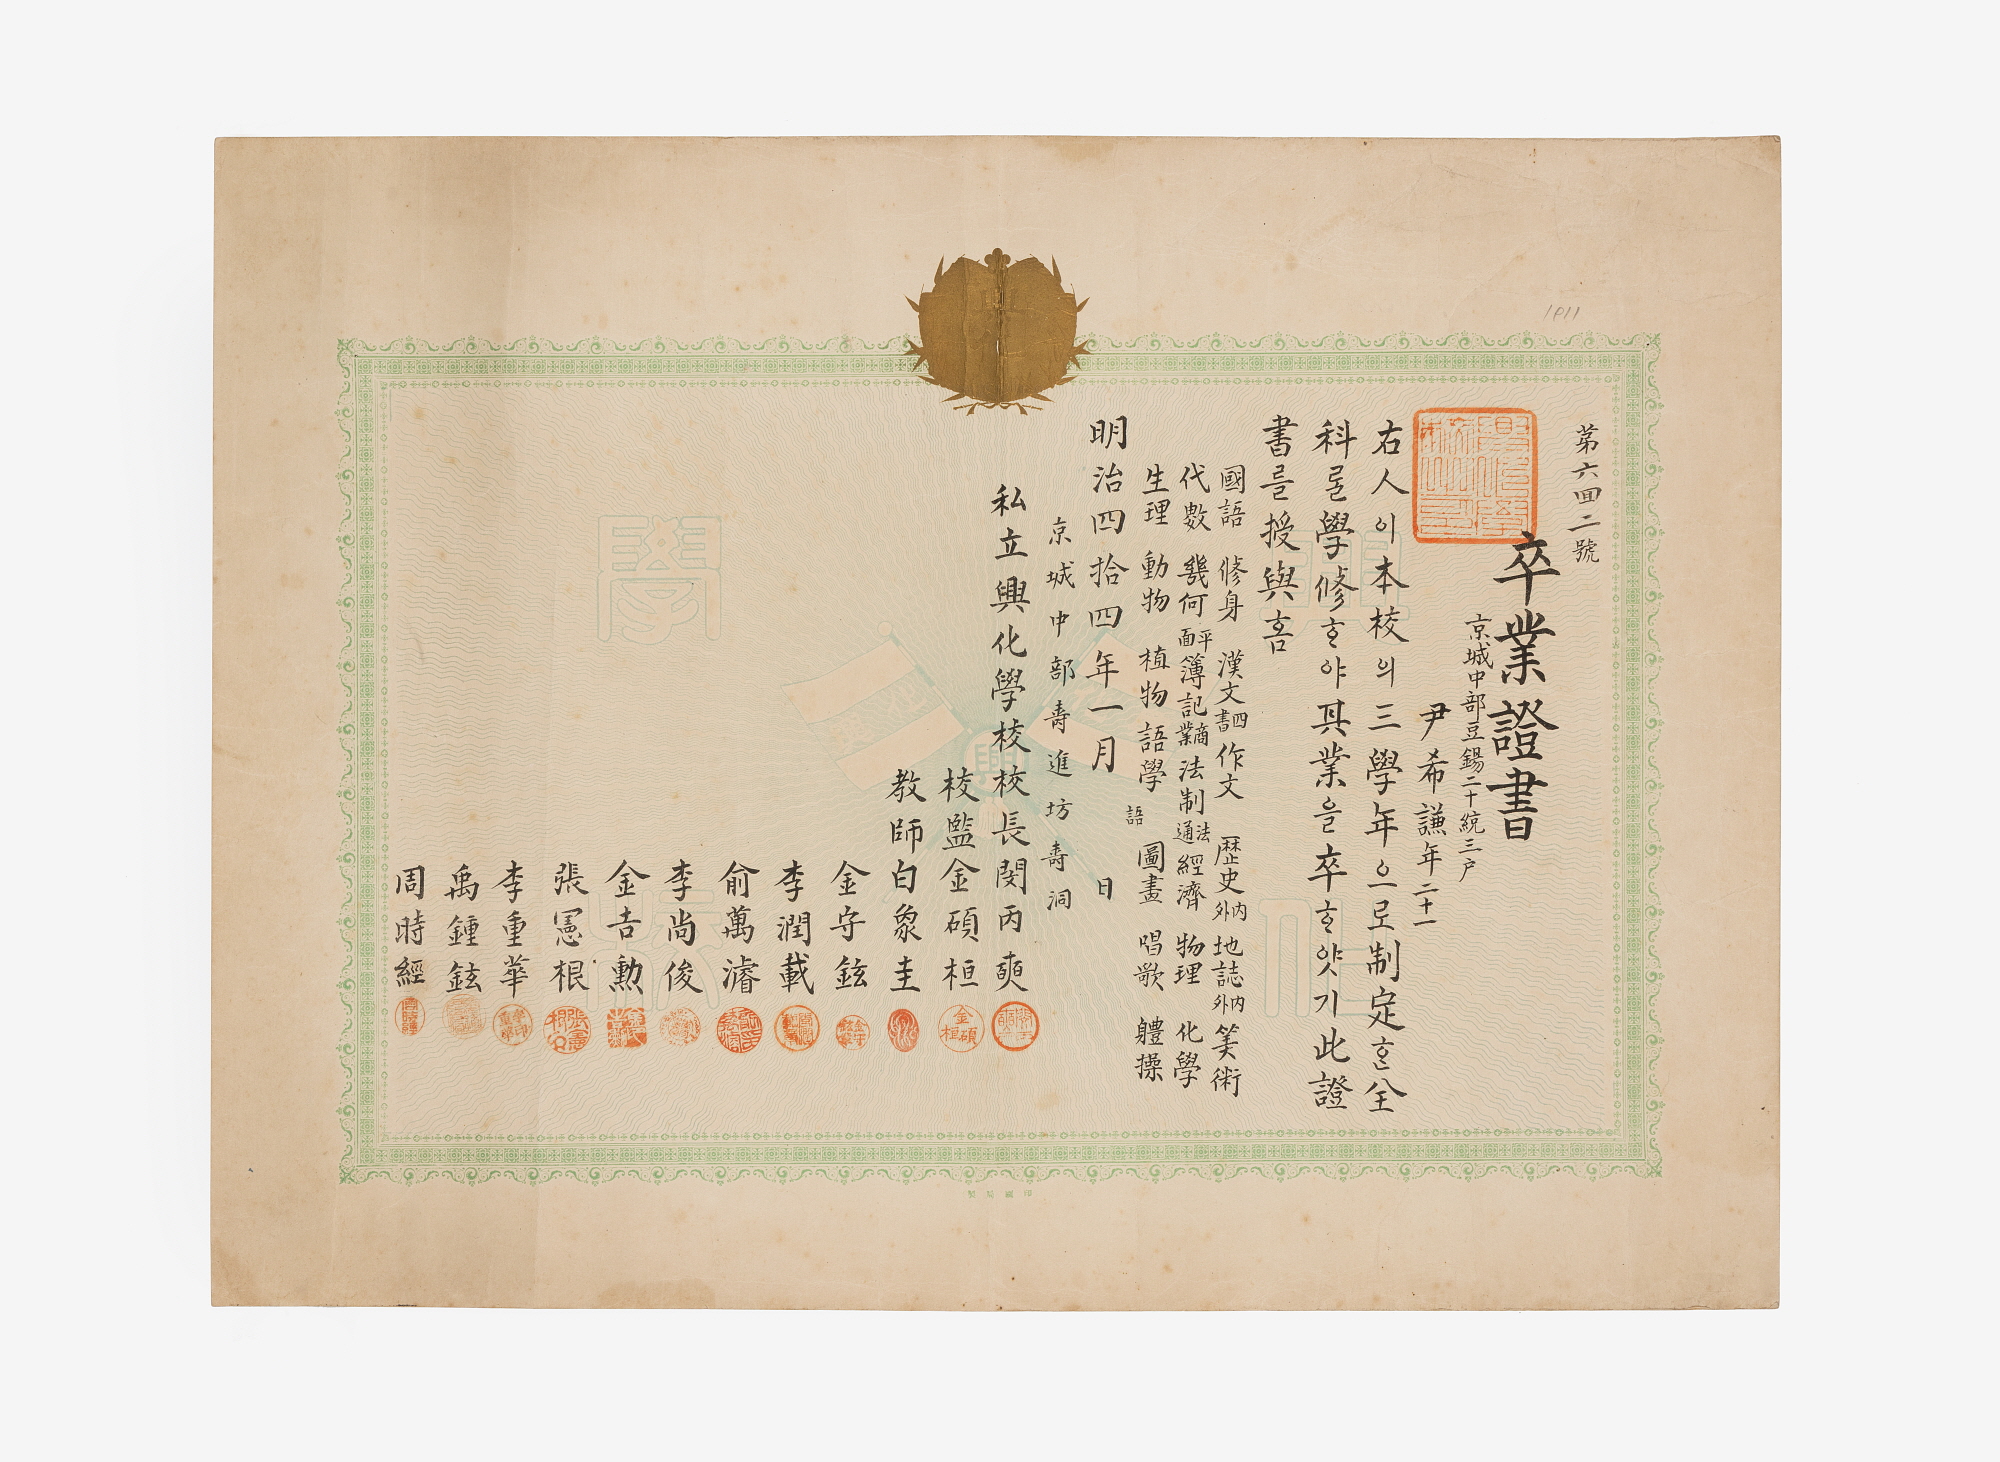 1911
第六四二號
卒業證書
京城中部豆錫二十統三戶
尹希謙年二十一
右人이本校의三學年으로制定ᄒᆞᆫ全
科ᄅᆞᆯ學修ᄒᆞ야其業을卒ᄒᆞ얏기此證
書를授與홈
國語 修身 漢文四書 作文 歷史內外 地誌內外 筭術
代數 幾何平面 簿記商業 法制法通 經濟 物理 化學
生理 動物 植物 語學 語 圖畫 唱歌 體操
明治四拾四年一月 日
京城中部壽進坊壽洞
私立興化學校校長閔丙奭
校監金碩桓
教師白象圭
金守鉉
李潤載
俞萬濬
李尙俊
金吉勳
張憲根
李重華
禹鍾鉉
周時經
學